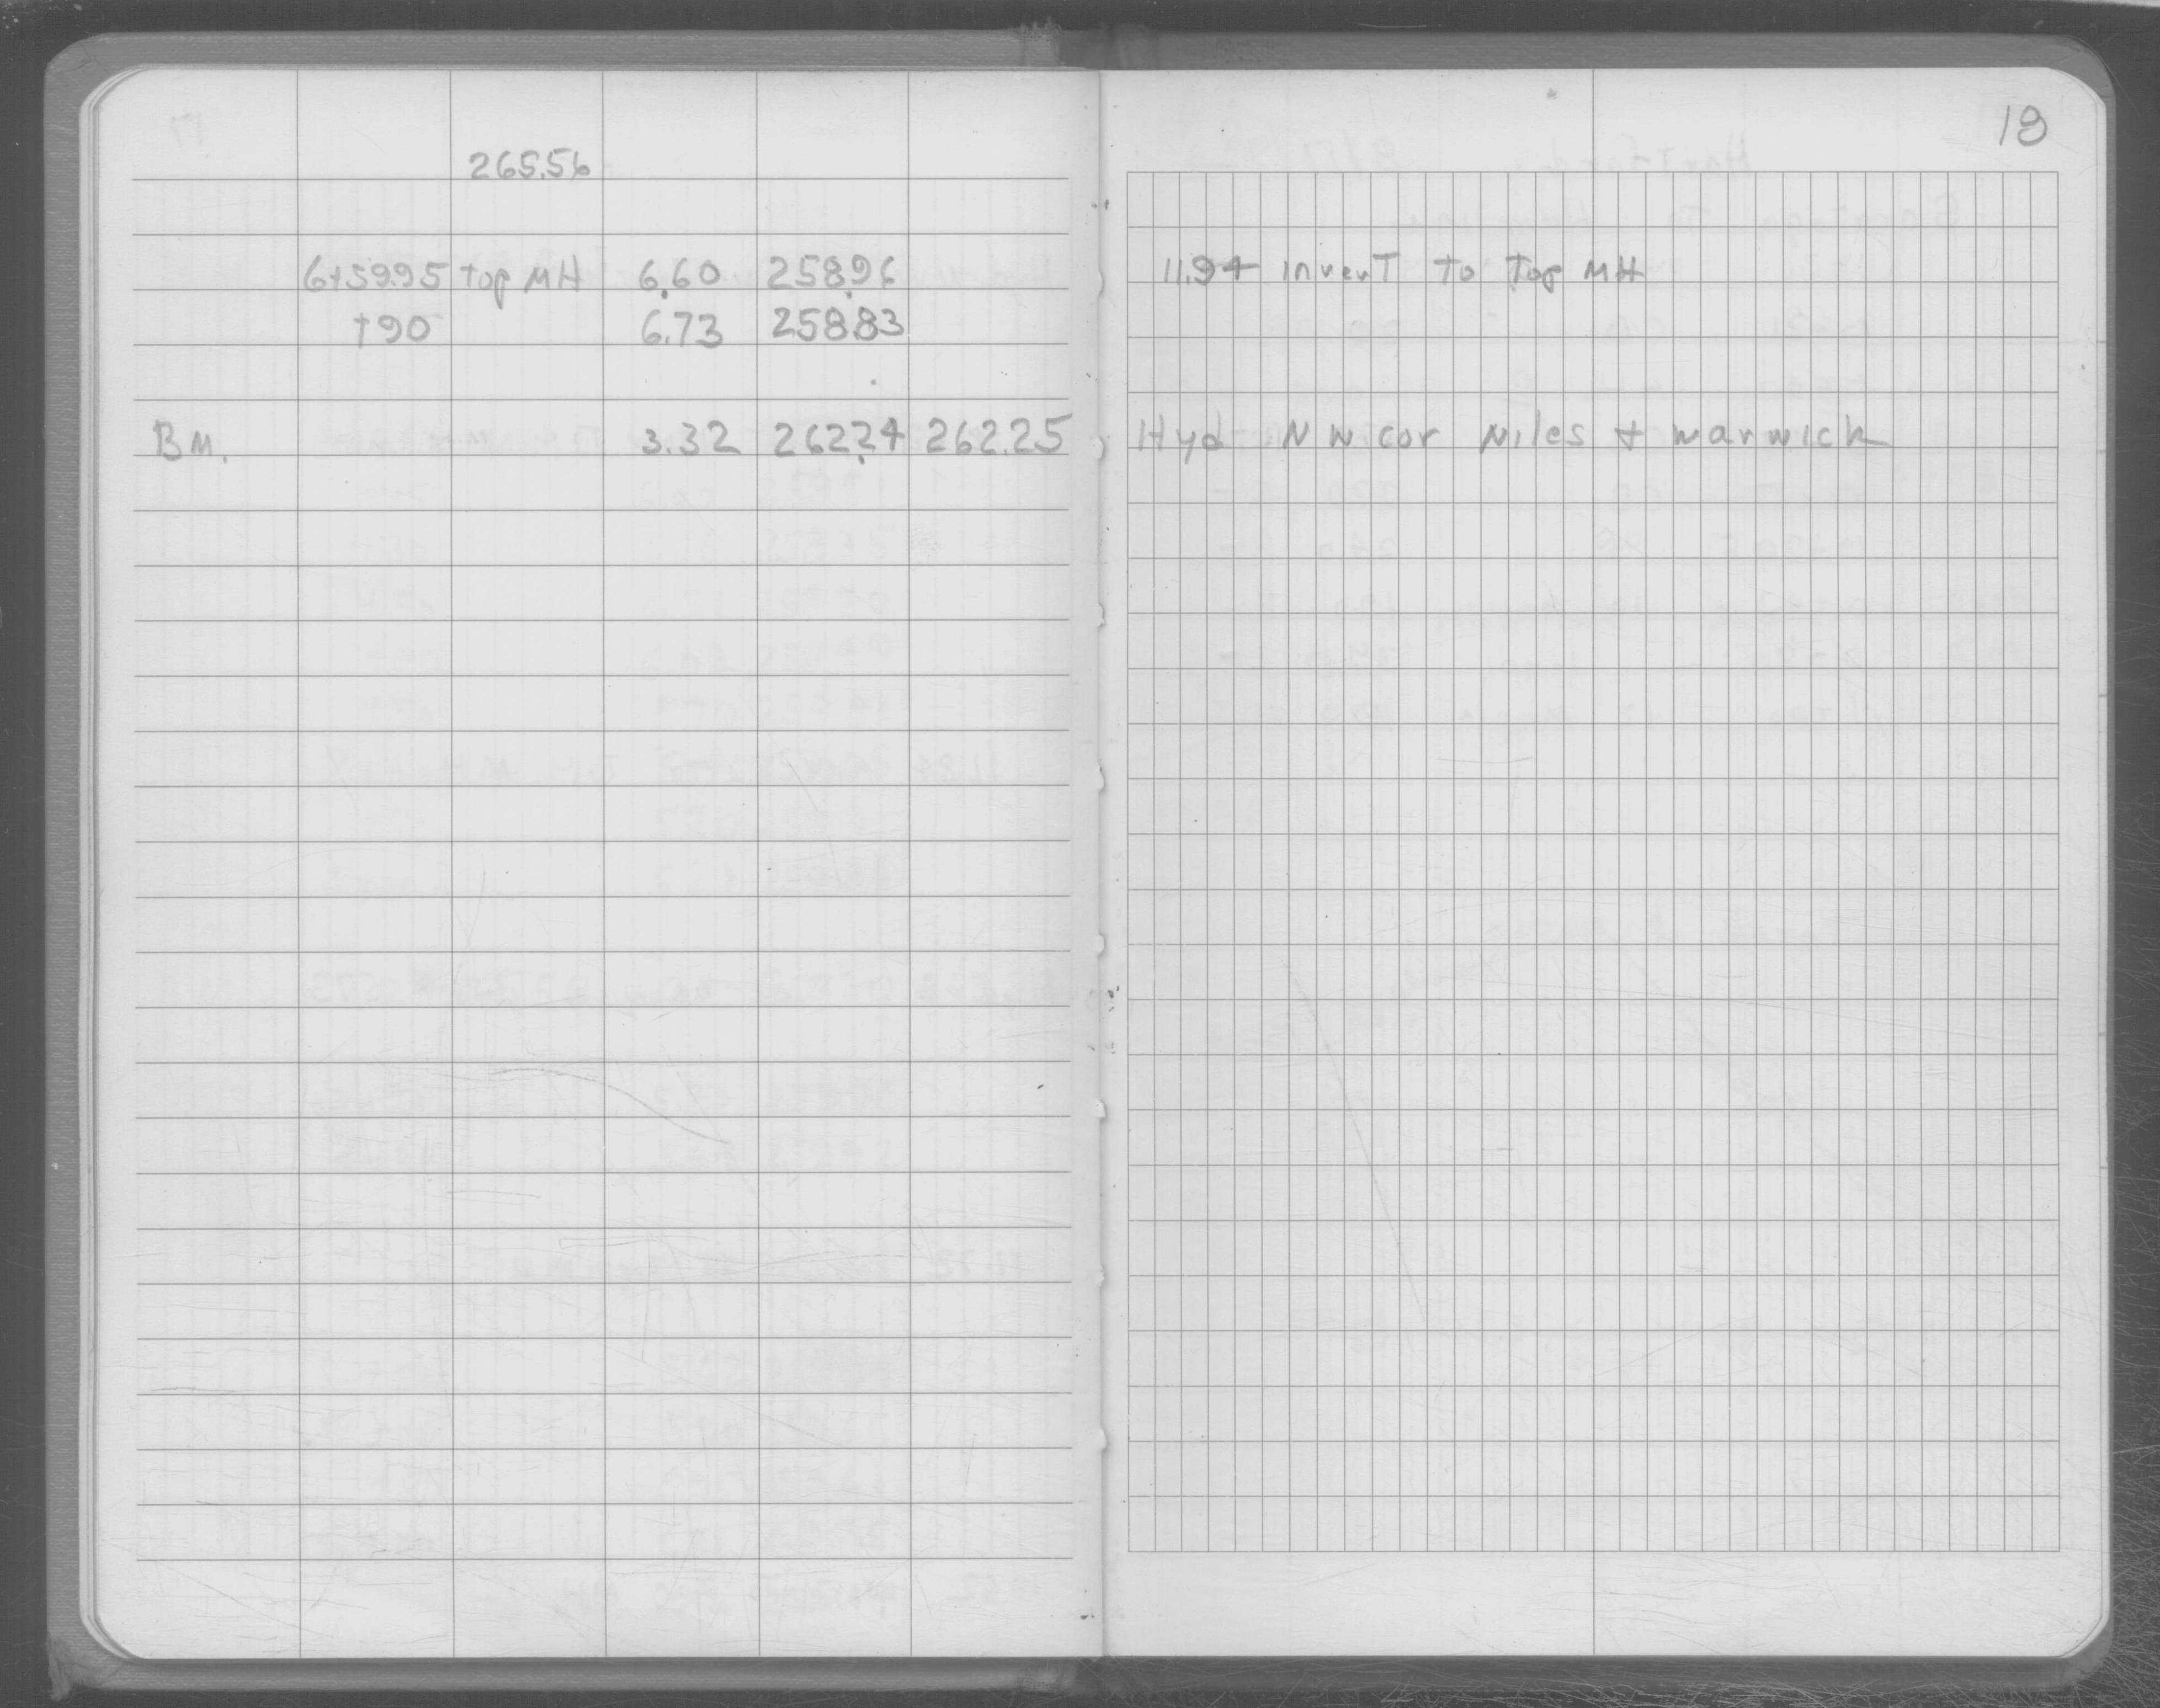 18
265.56
6+59.95 top MH 6.60 258.96 11.94 invert to top MH
+90 6.73 258.83
BM. 3.32 262.24 262.25 Hyd NW cor Niles + Warwick